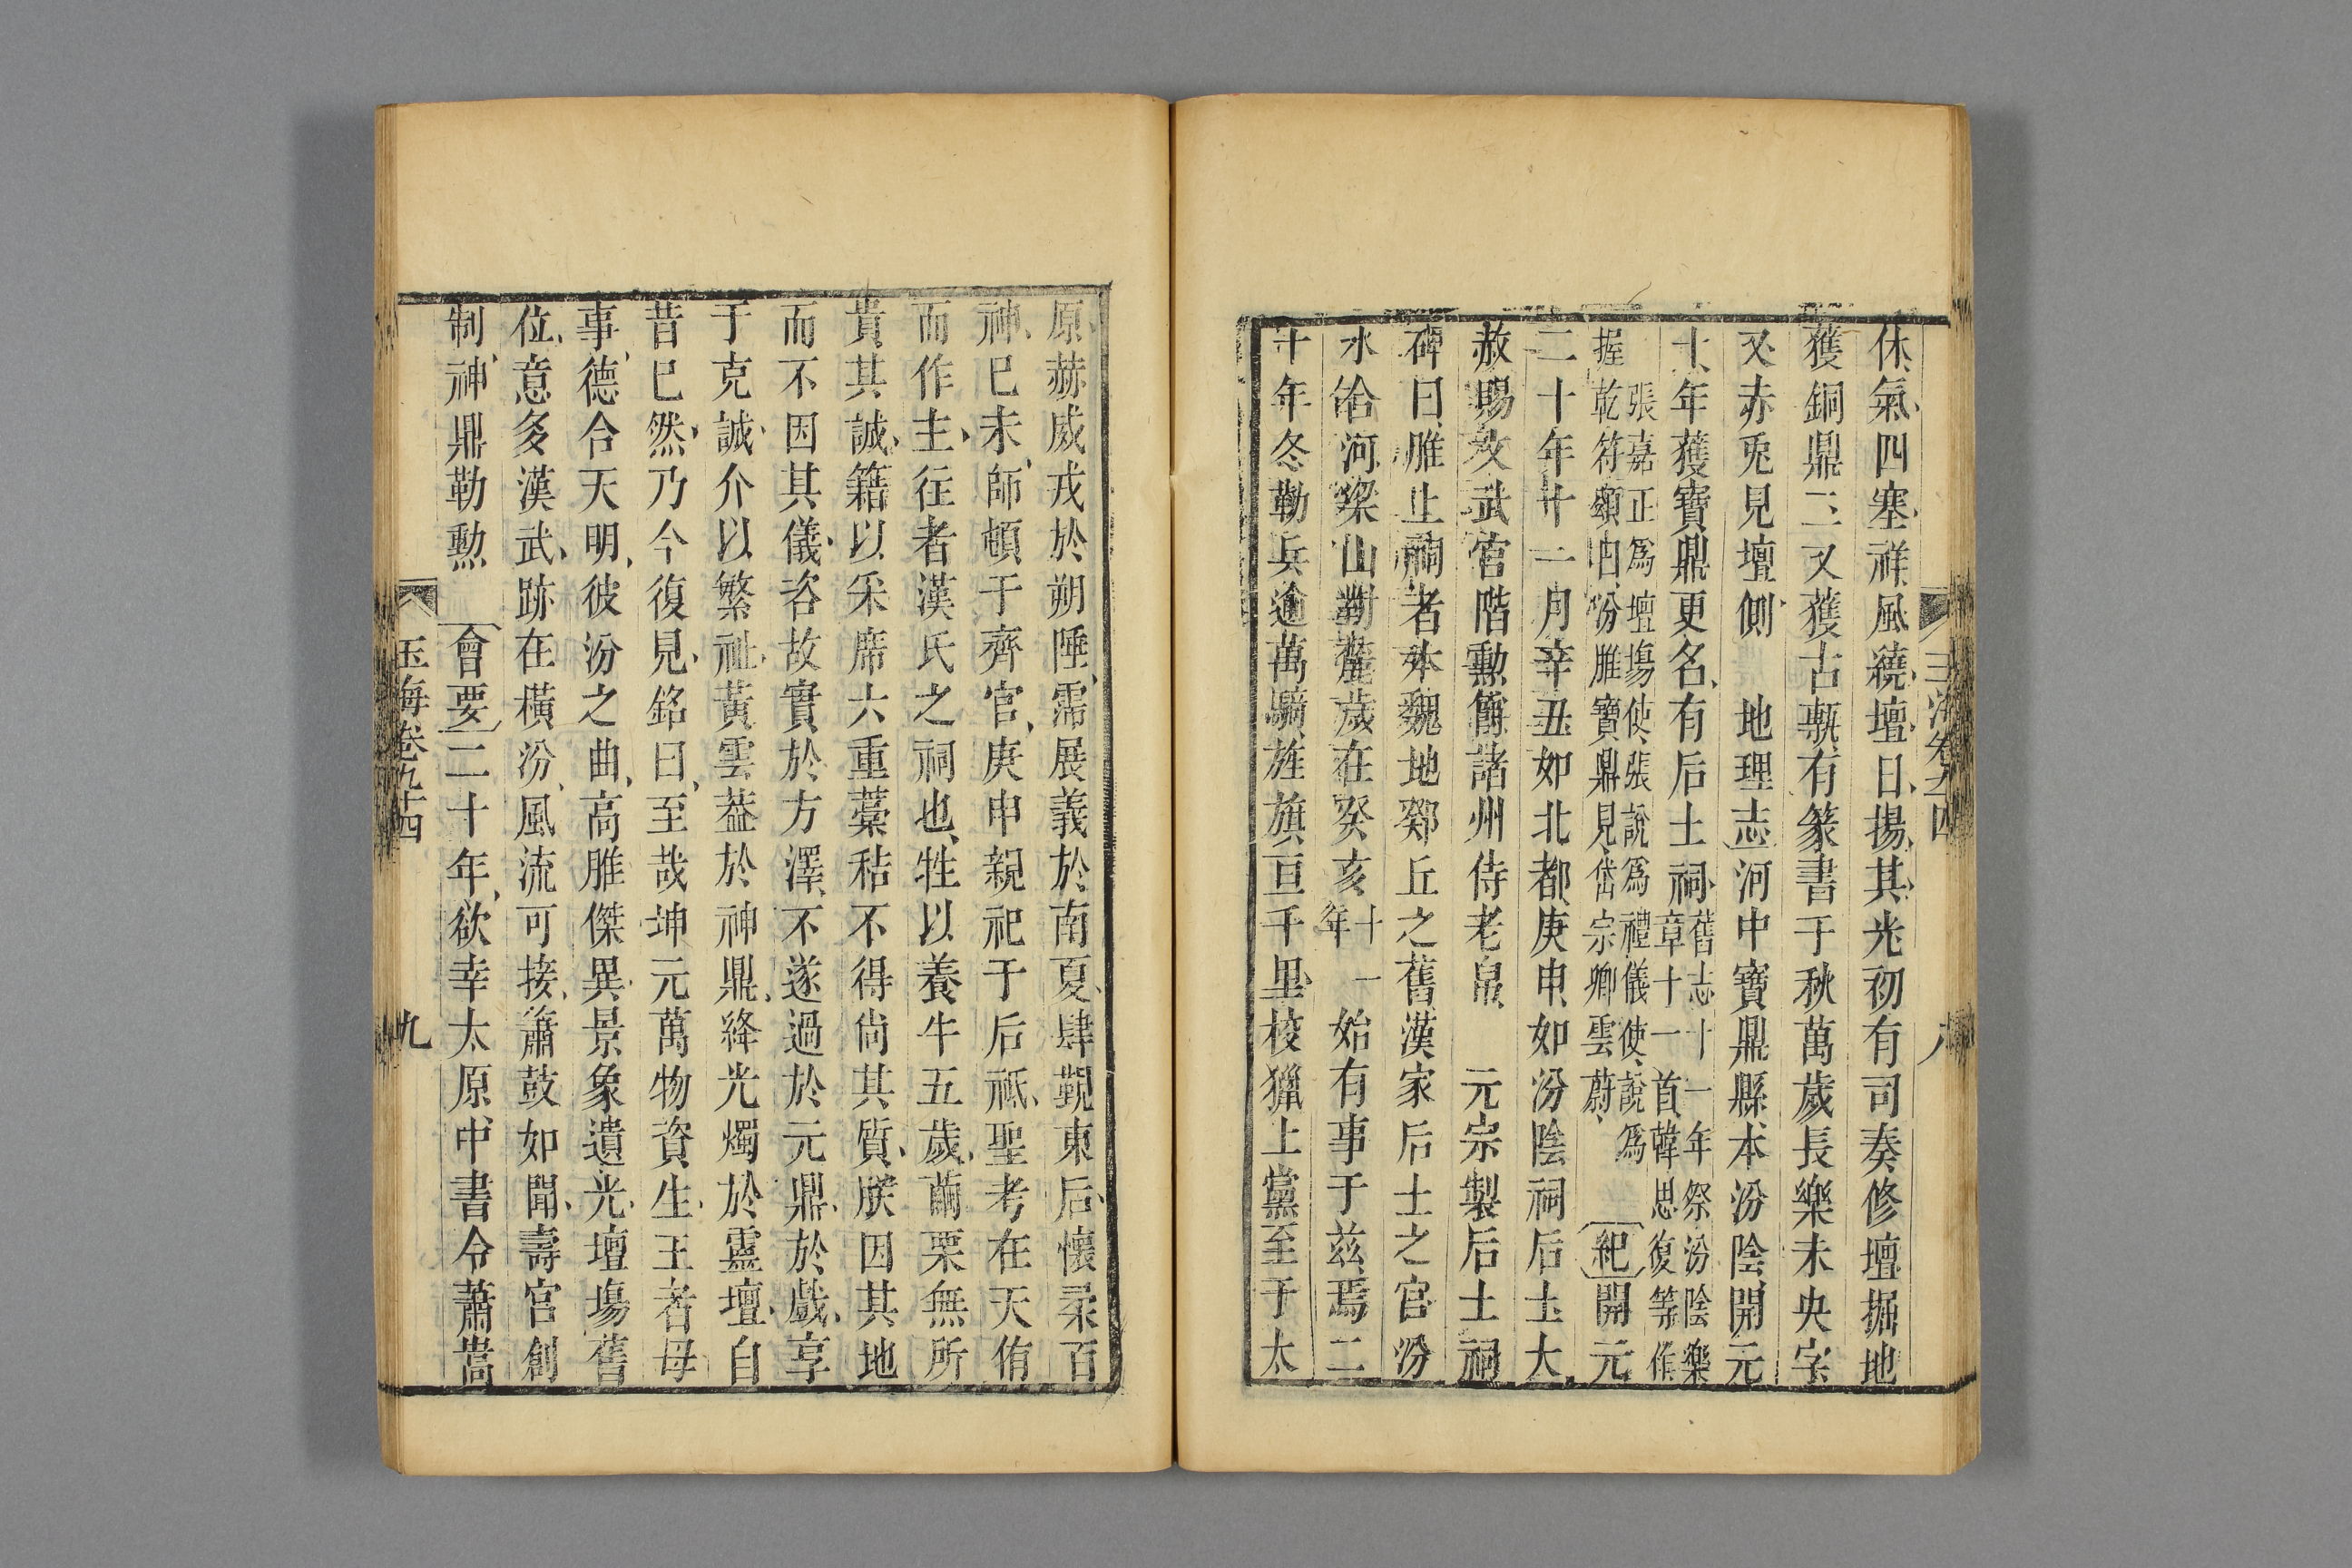 玉海卷九十四
八
休氣四塞祥風繞壇日揚其光初有司奏修壇掘地
獲銅鼎三又獲古甎有篆書于秋萬歲長樂未央字
又赤兎見壇側 地理志河中寶鼎縣本汾陰開元
十年獲寶鼎更名有后土祠舊志十一年祭汾陰樂
章十一首韓思復等作
張嘉正爲壇場使張說爲禮儀使說爲
握乾符頌曰汾脽寶鼎見岱宗卿雲蔚 紀開元
二十年十一月辛丑如北都庚申如汾陰祠后土大
赦賜文武官階勳爵諸州侍老帛 元宗製后土祠
碑曰脽上祠者本魏地鄈丘之舊漢家后土之宫汾
水洽河梁山對麓歲在癸亥十一年始有事于兹焉二
十年冬勒兵逾萬騎旌旗亘千里校獵上黨至于太
原赫威戎於朔陲霈展義於南夏肆覲東后懷柔百
神巳未師頓于齊宫庚申親祀于后祇聖考在天侑
而作主往者漢氏之祠也牲以養牛五歲繭栗無所
貴其誠籍以采席六重藁秸不得尚其質朕因其地
而不因其儀咨故實於方澤不遂過於元鼎於戲享
于克誠介以繁祉黃雲葢於神鼎絳光燭於靈壇自
昔巳然乃今復見銘曰至哉坤元萬物資生王者母
事德合天明彼汾之曲高脽傑異景象遺光壇場舊
位意多漢武跡在橫汾風流可接簫鼓如聞壽宫創
制神鼎勒勲 會要二十年欲幸太原中書令蕭嵩
玉海卷九十四
九